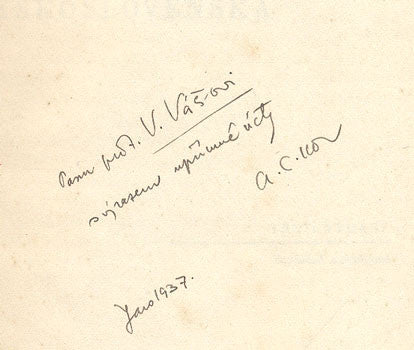 Panu prof. V. Vášovi
s výrazem upřímné úcty
A. C. Nor
Jaro 1937.